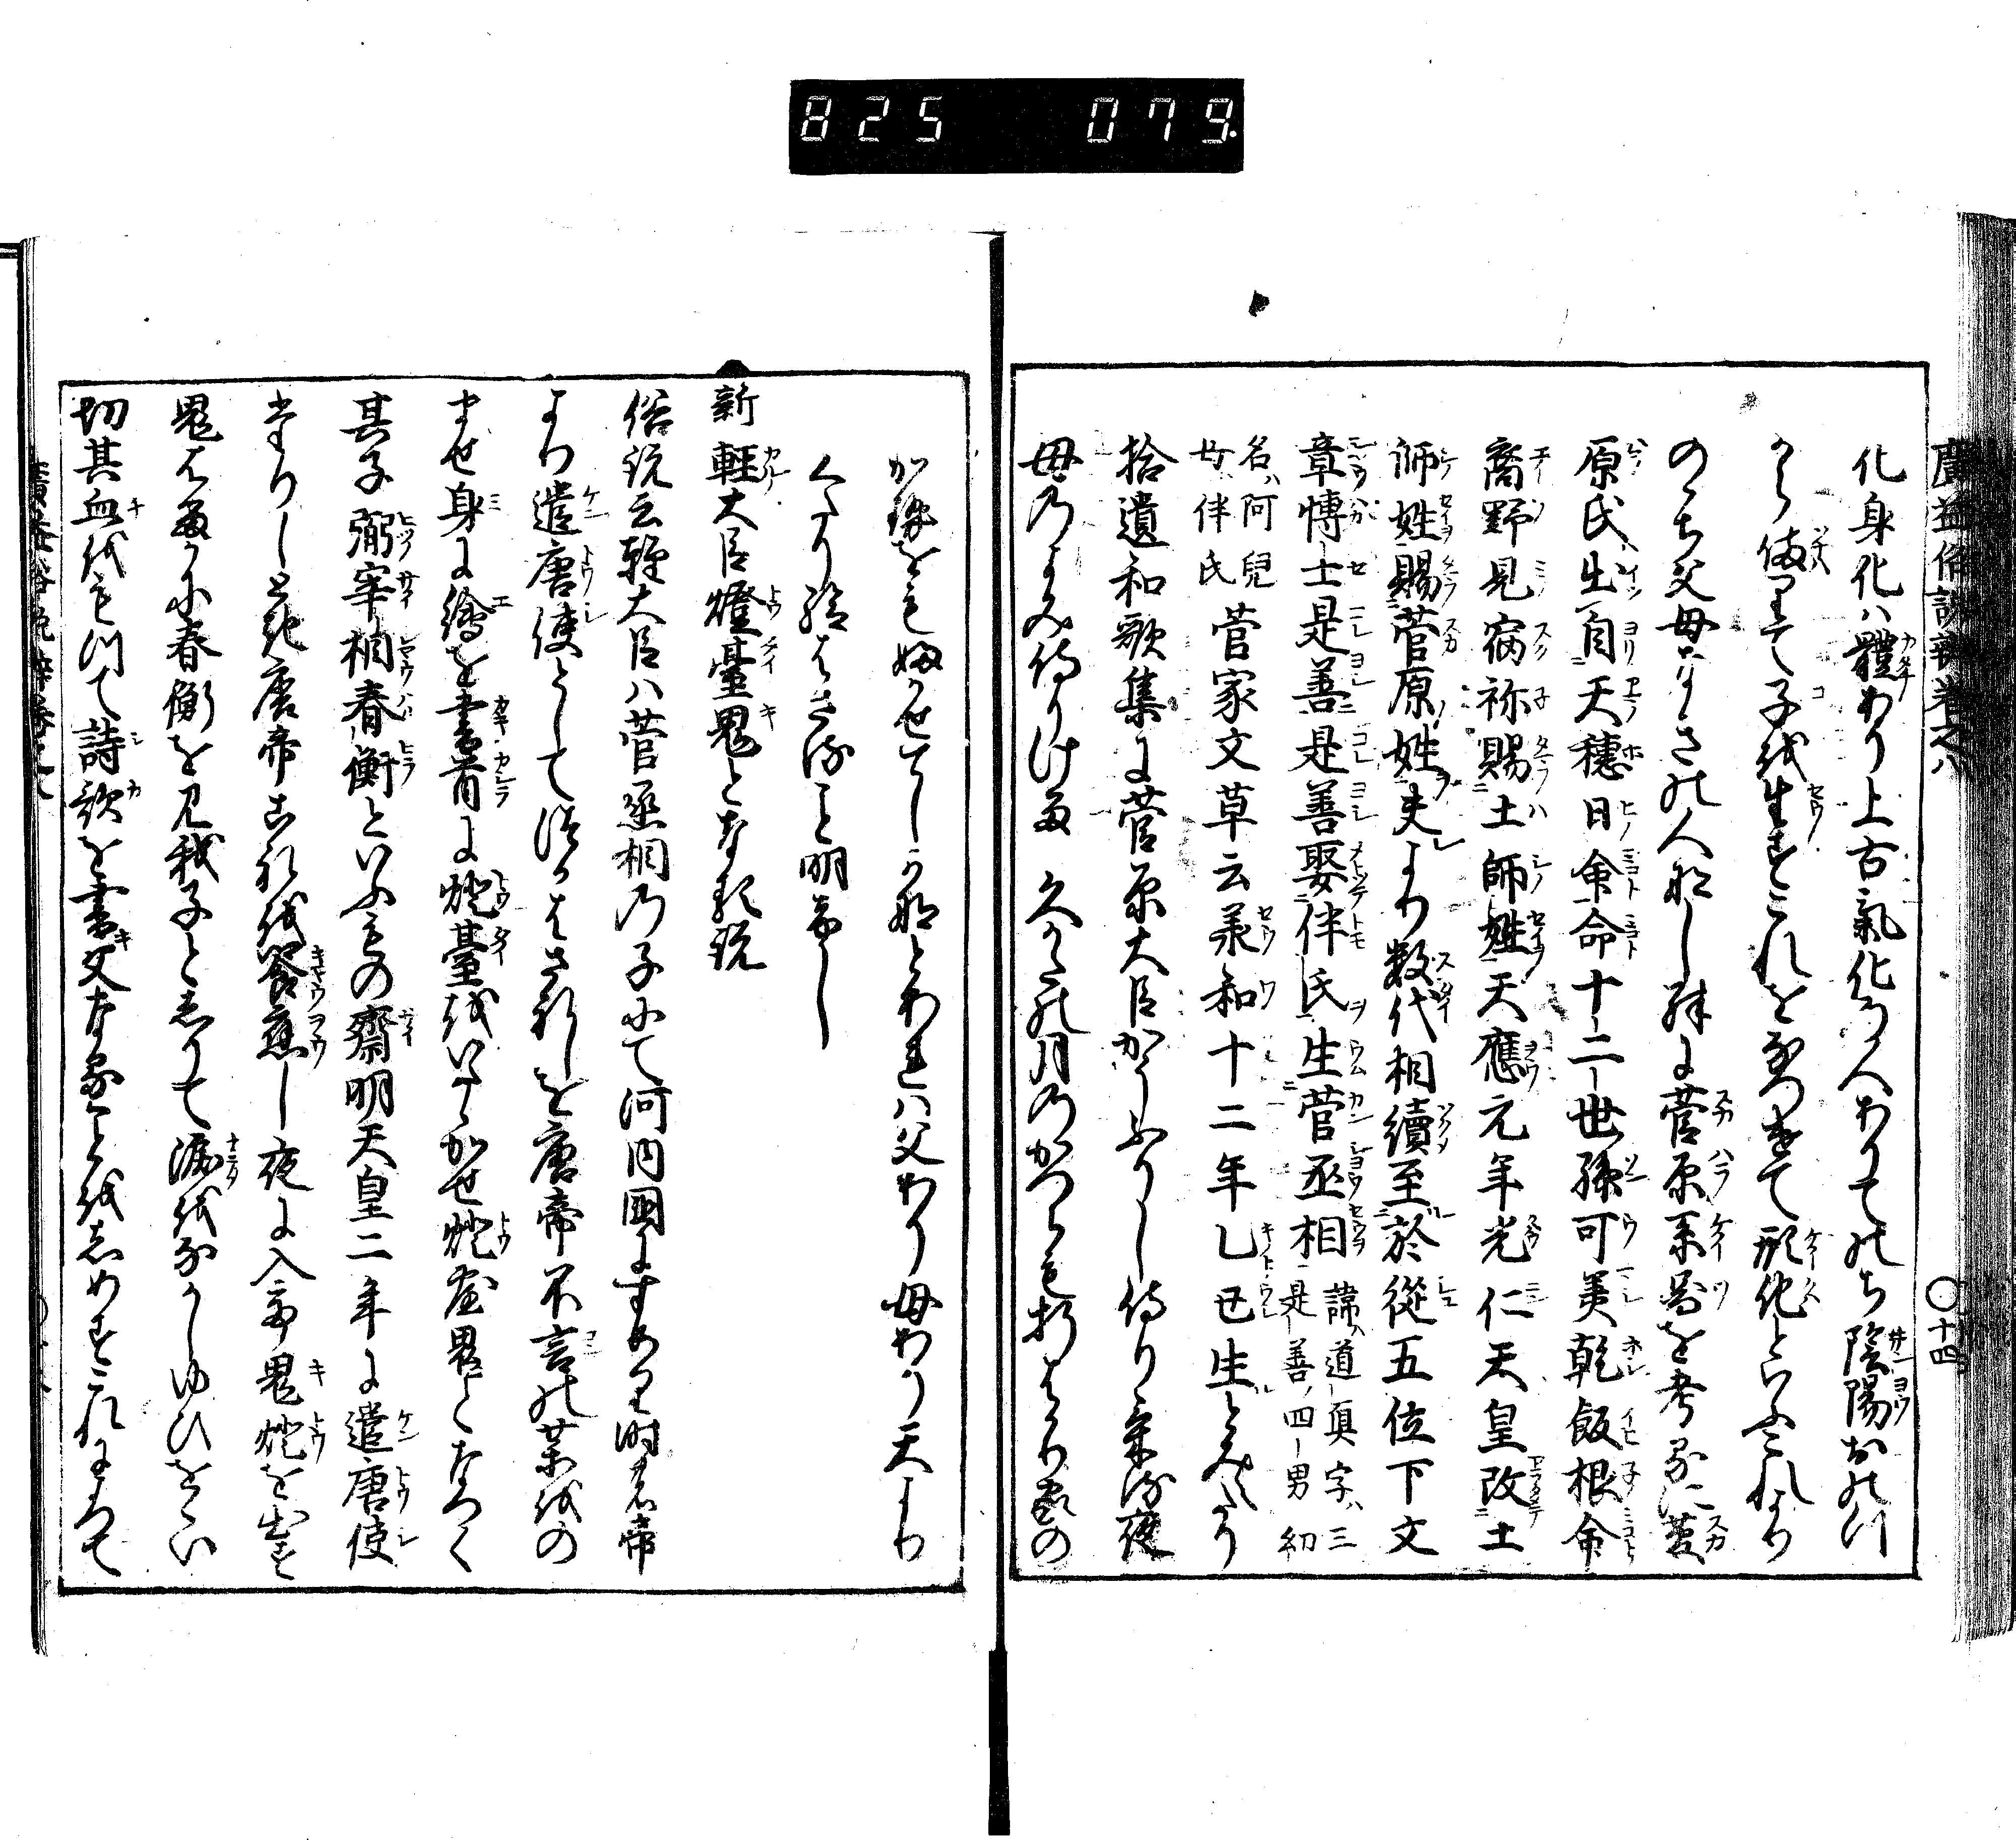 825 079
廣益俗説辨卷之八 ○十四
化身化ハ體あり上古氣化の人ありてのち陰陽おのつ
から偶て子を生すこれをなつけて形化といふこれより
のち父母なきの人なし殊に菅原系圖を考るに菅
原氏出自天穂日命命十二世孫可美乾飯根命
裔野見宿祢賜土師姓天應元年光仁天皇改土
師姓賜菅原姓夫より数代相續至於從五位下文
章博士是善是善娶伴氏生菅丞相 諱ハ道眞字ハ三 是善ノ四男幼
名ハ阿兒 母伴氏 菅家文草云承和十二年乙丑生とみえたり
拾遺和歌集に菅原大臣かうふりし侍りける夜
母のよみ侍りける 久かたの月のかつらも折はかり家の
かせをもふかせてしかなとあれハ父あり母あり天より
くたり給はさること明なし
新 輕大臣燈臺鬼となる説
俗説云輕大臣ハ菅丞相の子にて河内國にすめり時の帝
より遣唐使としてつかはされしを唐帝不言の薬をの
ませ身に繪を書首に燈臺をいたゝかせ燈臺鬼となつく
其子弼宰相春衡といふもの齋明天皇二年に遣唐使
たりしとき唐帝これを饗應し夜に入て鬼燈を出す
鬼はるかに春衡を見我子としりて涙をなかしゆひをくい
切其血をもつて詩歌を書父なることをしめすこれによつて